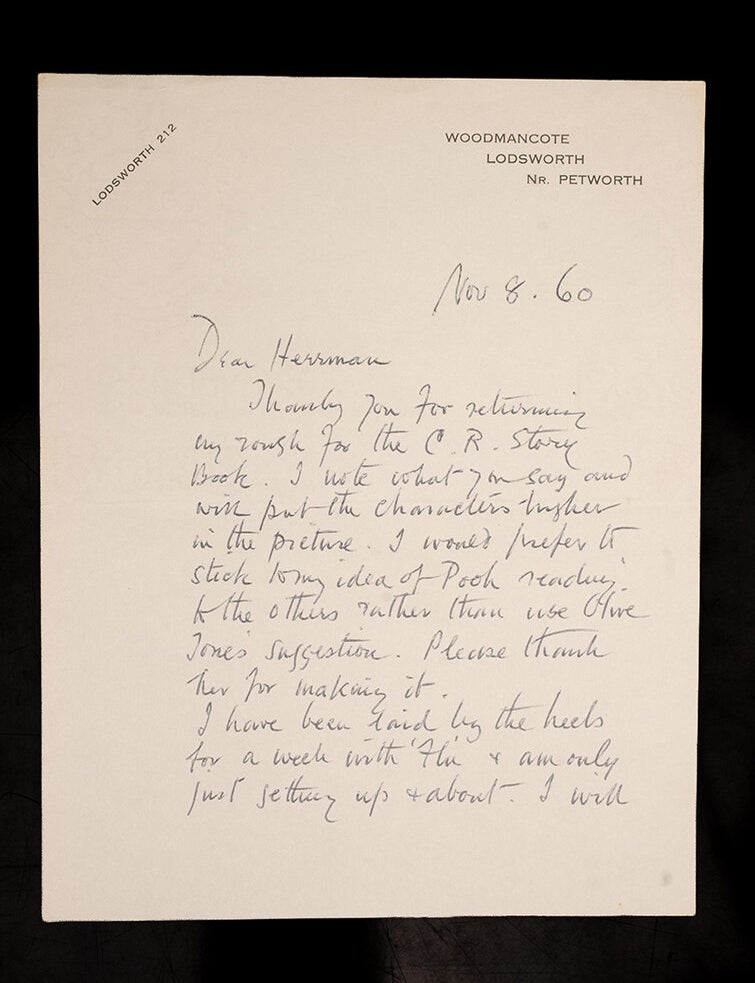 LODSWORTH 212
WOODMANCOTE
LODSWORTH
NR. PETWORTH
Nov 8. 60
Dear Herrman
Thank you for returning
my rough for the C. R. Story
Book. I note what you say and
will put the characters higher
in the picture. I would prefer to
stick to my idea of Pooh reading
to the others rather than use Olive
Jones suggestion. Please thank
her for making it.
I have been laid by the heels
for a week with 'Flu & am only
just getting up & about. I will